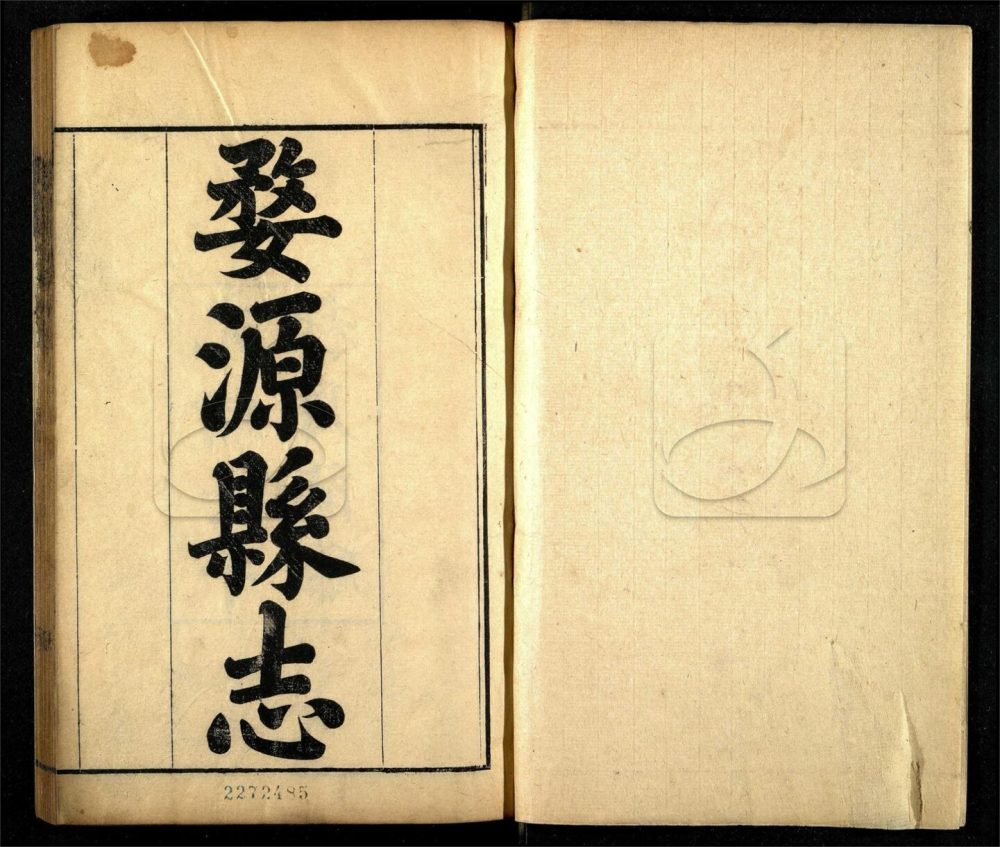 婺源縣志
2272485